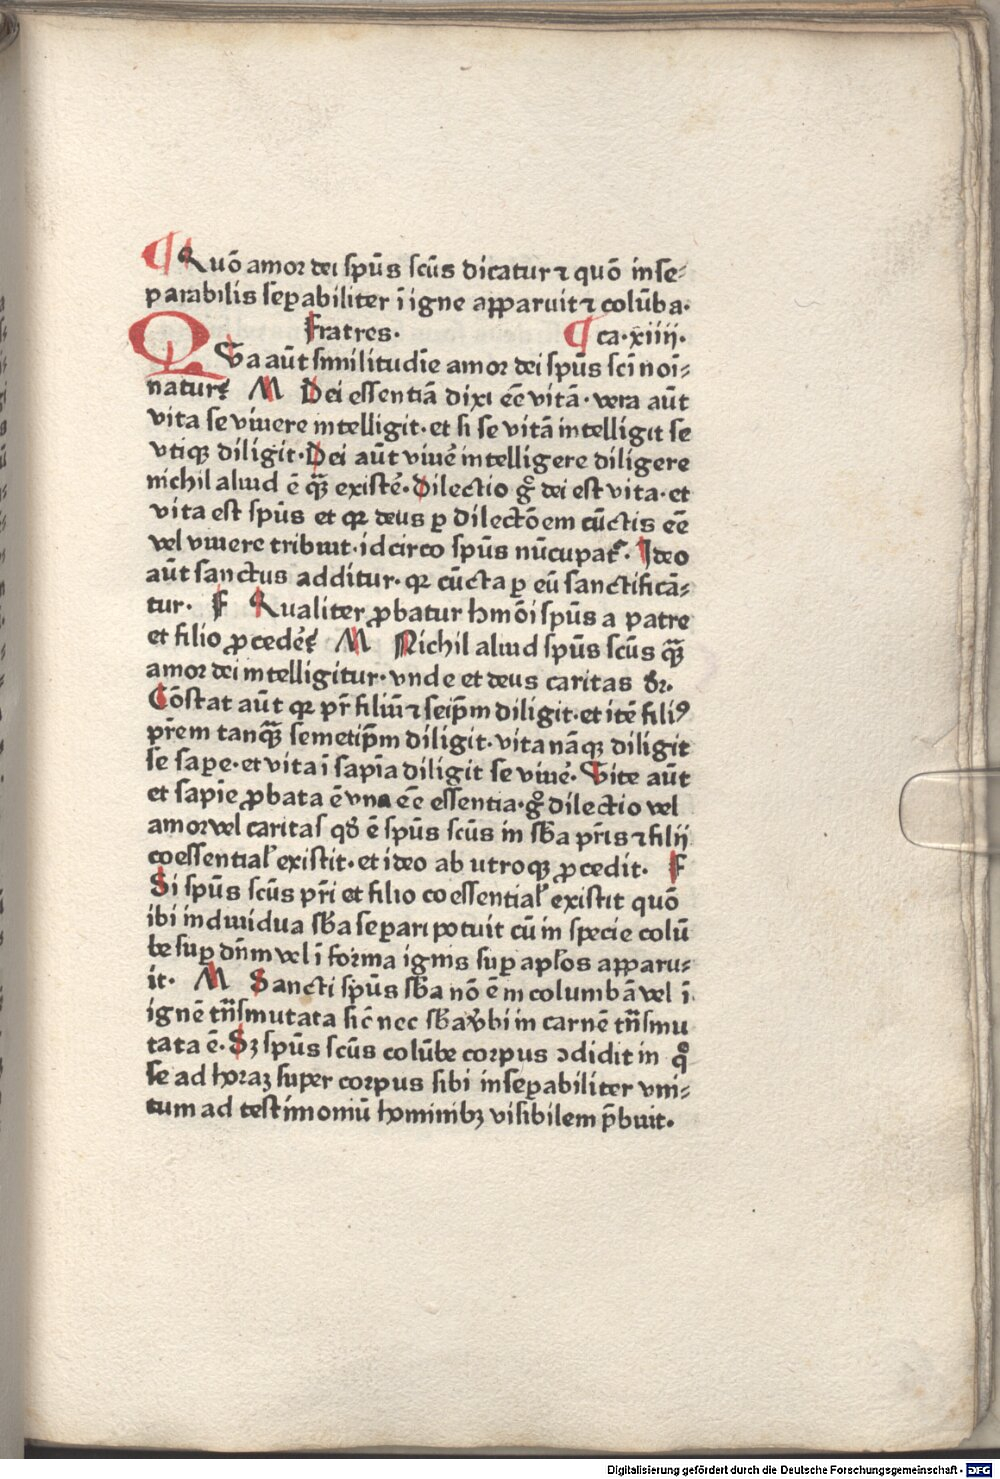 ¶ Quō amor dei ſpūs ſcūs dicatur ⁊ quō inſe⸗
parabilis ſeꝑabiliter ī igne apparuit ⁊ colūba·
Fratres· ¶ ca·xiiii·
QVa aūt ſimilitudīe amor dei ſpūs ſcī noī⸗
natur? M Dei eſſentiā dixi eē vitā· vera aūt
vita ſe viuere intelligit· et ſi ſe vitā intelligit ſe
vtiqꝫ diligit· Dei aūt viuē intelligere diligere
nichil aliud ē qꝫ̄ exiſtē· Dilectio gͦ dei eſt vita· et
vita eſt ſpūs et qꝛ deus ꝑ dilectōem cūctis eē
vel viuere tribuit· idcirco ſpūs nūcupaťˢ· Ideo
aūt ſanctus additur· qꝛ cūcta ꝑ eū ſanctificā⸗
tur· F Qualiter ꝓbatur hmōi ſpūs a patre
et filio ꝓcedē? M Nichil aliud ſpūs ſcūs qꝫ̄
amor dei intelligitur· vnde et deus caritas dr̄·
Cōſtat aūt qꝛ pr̄ filiū ⁊ ſeip̄m diligit· et itē filiꝰ
pr̄em tanqꝫ̄ ſemetip̄m diligit· vita nāqꝫ diligit
ſe ſaꝑe· et vita ī ſapīa diligit ſe viuē· Vite aūt
et ſapīe ꝓbata ē vna eē eſſentia· gͦ dilectio vel
amor vel caritaſ qď ē ſpūs ſcūs in ſb̄a pr̄is ⁊ filij
coeſſential̓ exiſtit· et ideo ab utroqꝫ ꝓcedit· F
Si ſpūs ſcūs pr̄i et filio coeſſential̓ exiſtit quō
ibi indiuidua ſb̄a ſeꝑari potuit cū in ſpecie colū
be ſuꝑ dn̄m vel ī forma ignis ſuꝑ apl̄os apparu⸗
it· M Sancti ſpūs ſb̄a nō ē in columbā vel ī
ignē tn̄ſmutata ſic̄ nec ſb̄a v̄bi in carnē tn̄ſmu
tata ē· Sꝫ ſpūs ſcūs colūbe corpus ↄdidit in qͦ
ſe ad horaꝫ ſuper corpus ſibi inſeꝑabiliter vni⸗
tum ad teſtimoniū hominibꝫ viſibilem p̄buit·
Digitalisierung gefördert durch die Deutsche Forschungsgemeinschaft - DFG